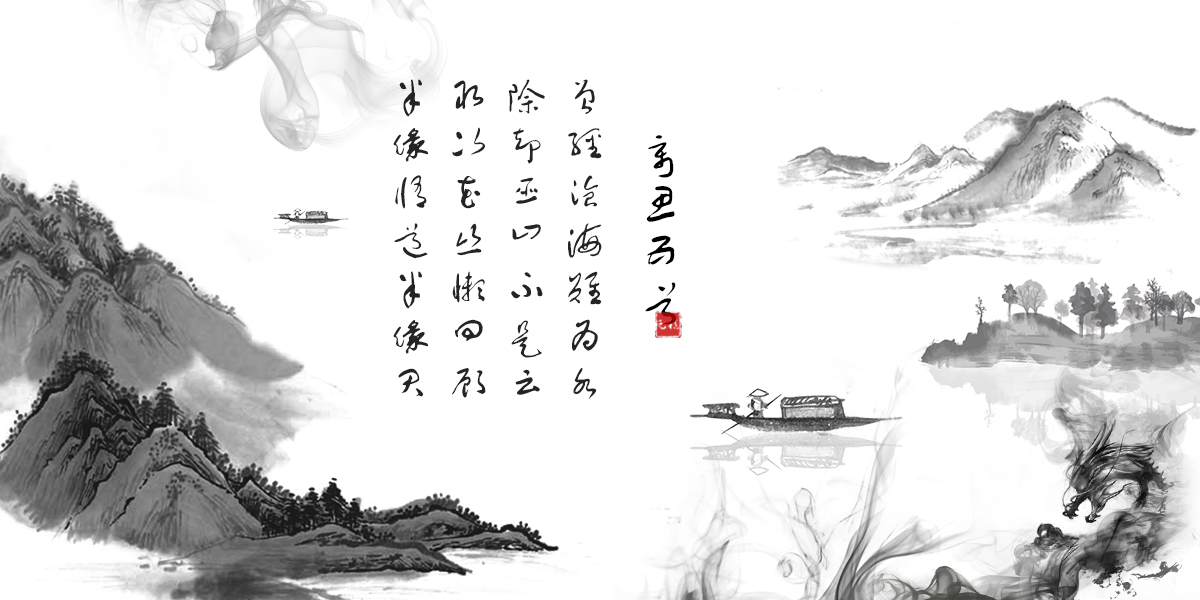 辛丑
曾经沧海难为水
除却巫山不是云
取次花丛懒回顾
半缘修道半缘君